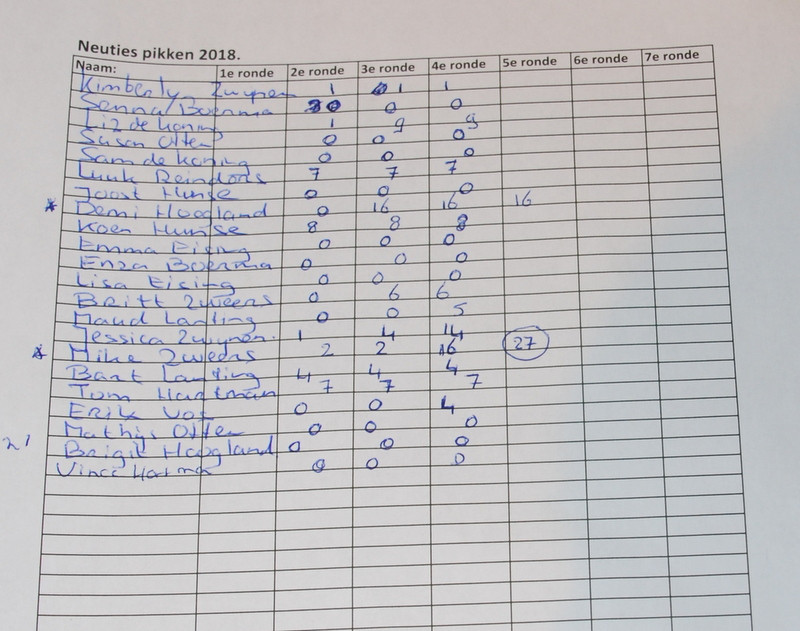 Neuties pikken 2018.
Naam: 1e ronde 2e ronde 3e ronde 4e ronde 5e ronde 6e ronde 7e ronde
Kimberly 1 1 1
Senna Boerma 0 0
Liz de Koning 1 9 9
Susan Otten 0 0 0
Sam de Koning 0 0 0
Luuk Reinders 7 7 7
Joost Hunse 0 0 0
* Demi Hoogland 0 16 16 16
Koen Hunse 8 8 8
Emma Eising 0 0 0
Enza Boerma 0 0 0
Lisa Eising 0 0 0
Britt Zweers 0 6 6
Maud Lanting 0 0 5
Jessica 1 4 14
* Mike Zweers 2 2 16 27
Bart Lanting 4 4 4
Tom Hartman 7 7 7
Erik Vos 0 0 4
Mathijs Otten 0 0 0
21 Brigit Hoogland 0 0 0
Vince Hartman 0 0 0